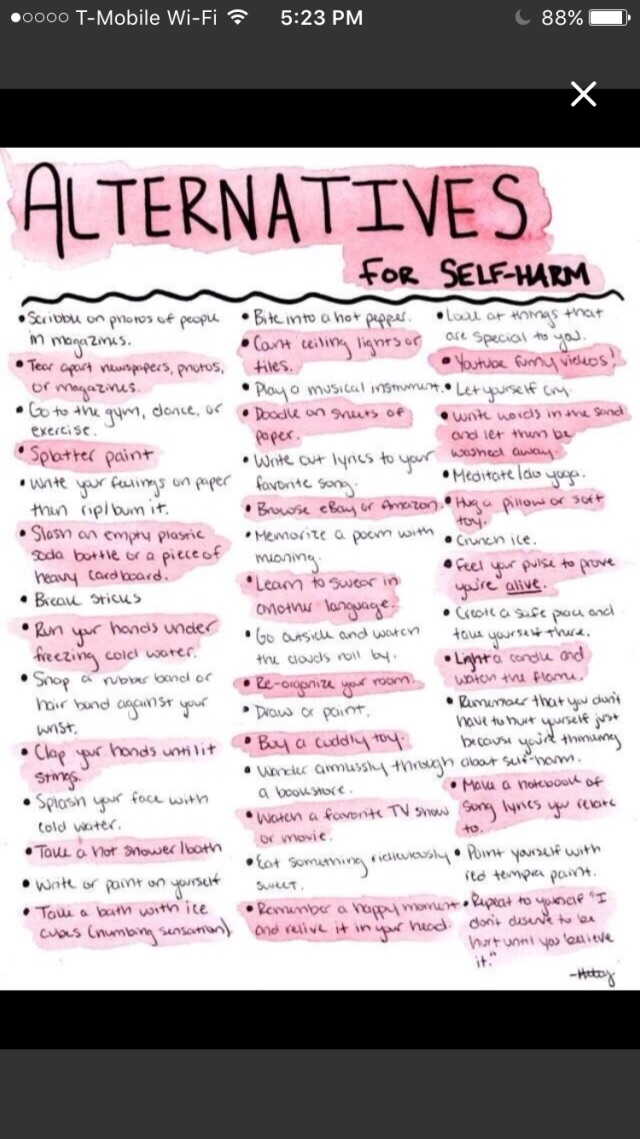 T-Mobile Wi-Fi 5:23 PM 88%
ALTERNATIVES
FOR SELF-HARM
• Scribble on photos of people
in magazines.
• Tear apart newspapers, photos,
or magazines.
• Go to the gym, dance, or
exercise.
• Splatter paint
• Write your feelings on paper
then rip/burn it.
• Slash an empty plastic
soda bottle or a piece of
heavy cardboard.
• Break sticks
• Run your hands under
freezing cold water.
• Snap a rubber band or
hair band against your
wrist.
• Clap your hands until it
stings.
• Splash your face with
cold water.
• Take a hot shower/bath
• Write or paint on yourself
• Take a bath with ice
cubes (numbing sensation)
• Bite into a hot pepper.
• Count ceiling lights or
tiles.
• Play a musical instrument.
• Doodle on sheets of
paper.
• Write out lyrics to your
favorite song.
• Browse eBay or Amazon.
• Memorize a poem with
meaning.
• Learn to swear in
another language.
• Go outside and watch
the clouds roll by.
• Re-organize your room.
• Draw or paint.
• Buy a cuddly toy.
• Wander aimlessly through
a bookstore.
• Watch a favorite TV show
or movie.
• Eat something ridiculously
sweet.
• Remember a happy moment
and relive it in your head.
• Look at things that
are special to you.
• Youtube funny videos!
• Let yourself cry.
• Write words in the sand
and let them be
washed away.
• Meditate/do yoga.
• Hug a pillow or soft
toy.
• Crunch ice.
• Feel your pulse to prove
you're alive.
• Create a safe place and
take yourself there.
• Light a candle and
watch the flame.
• Remember that you don't
have to hurt yourself just
because you're thinking
about self-harm.
• Make a notebook of
song lyrics you relate
to.
• Paint yourself with
red tempra paint.
• Repeat to yourself "I
don't deserve to be
hurt until you believe
it."